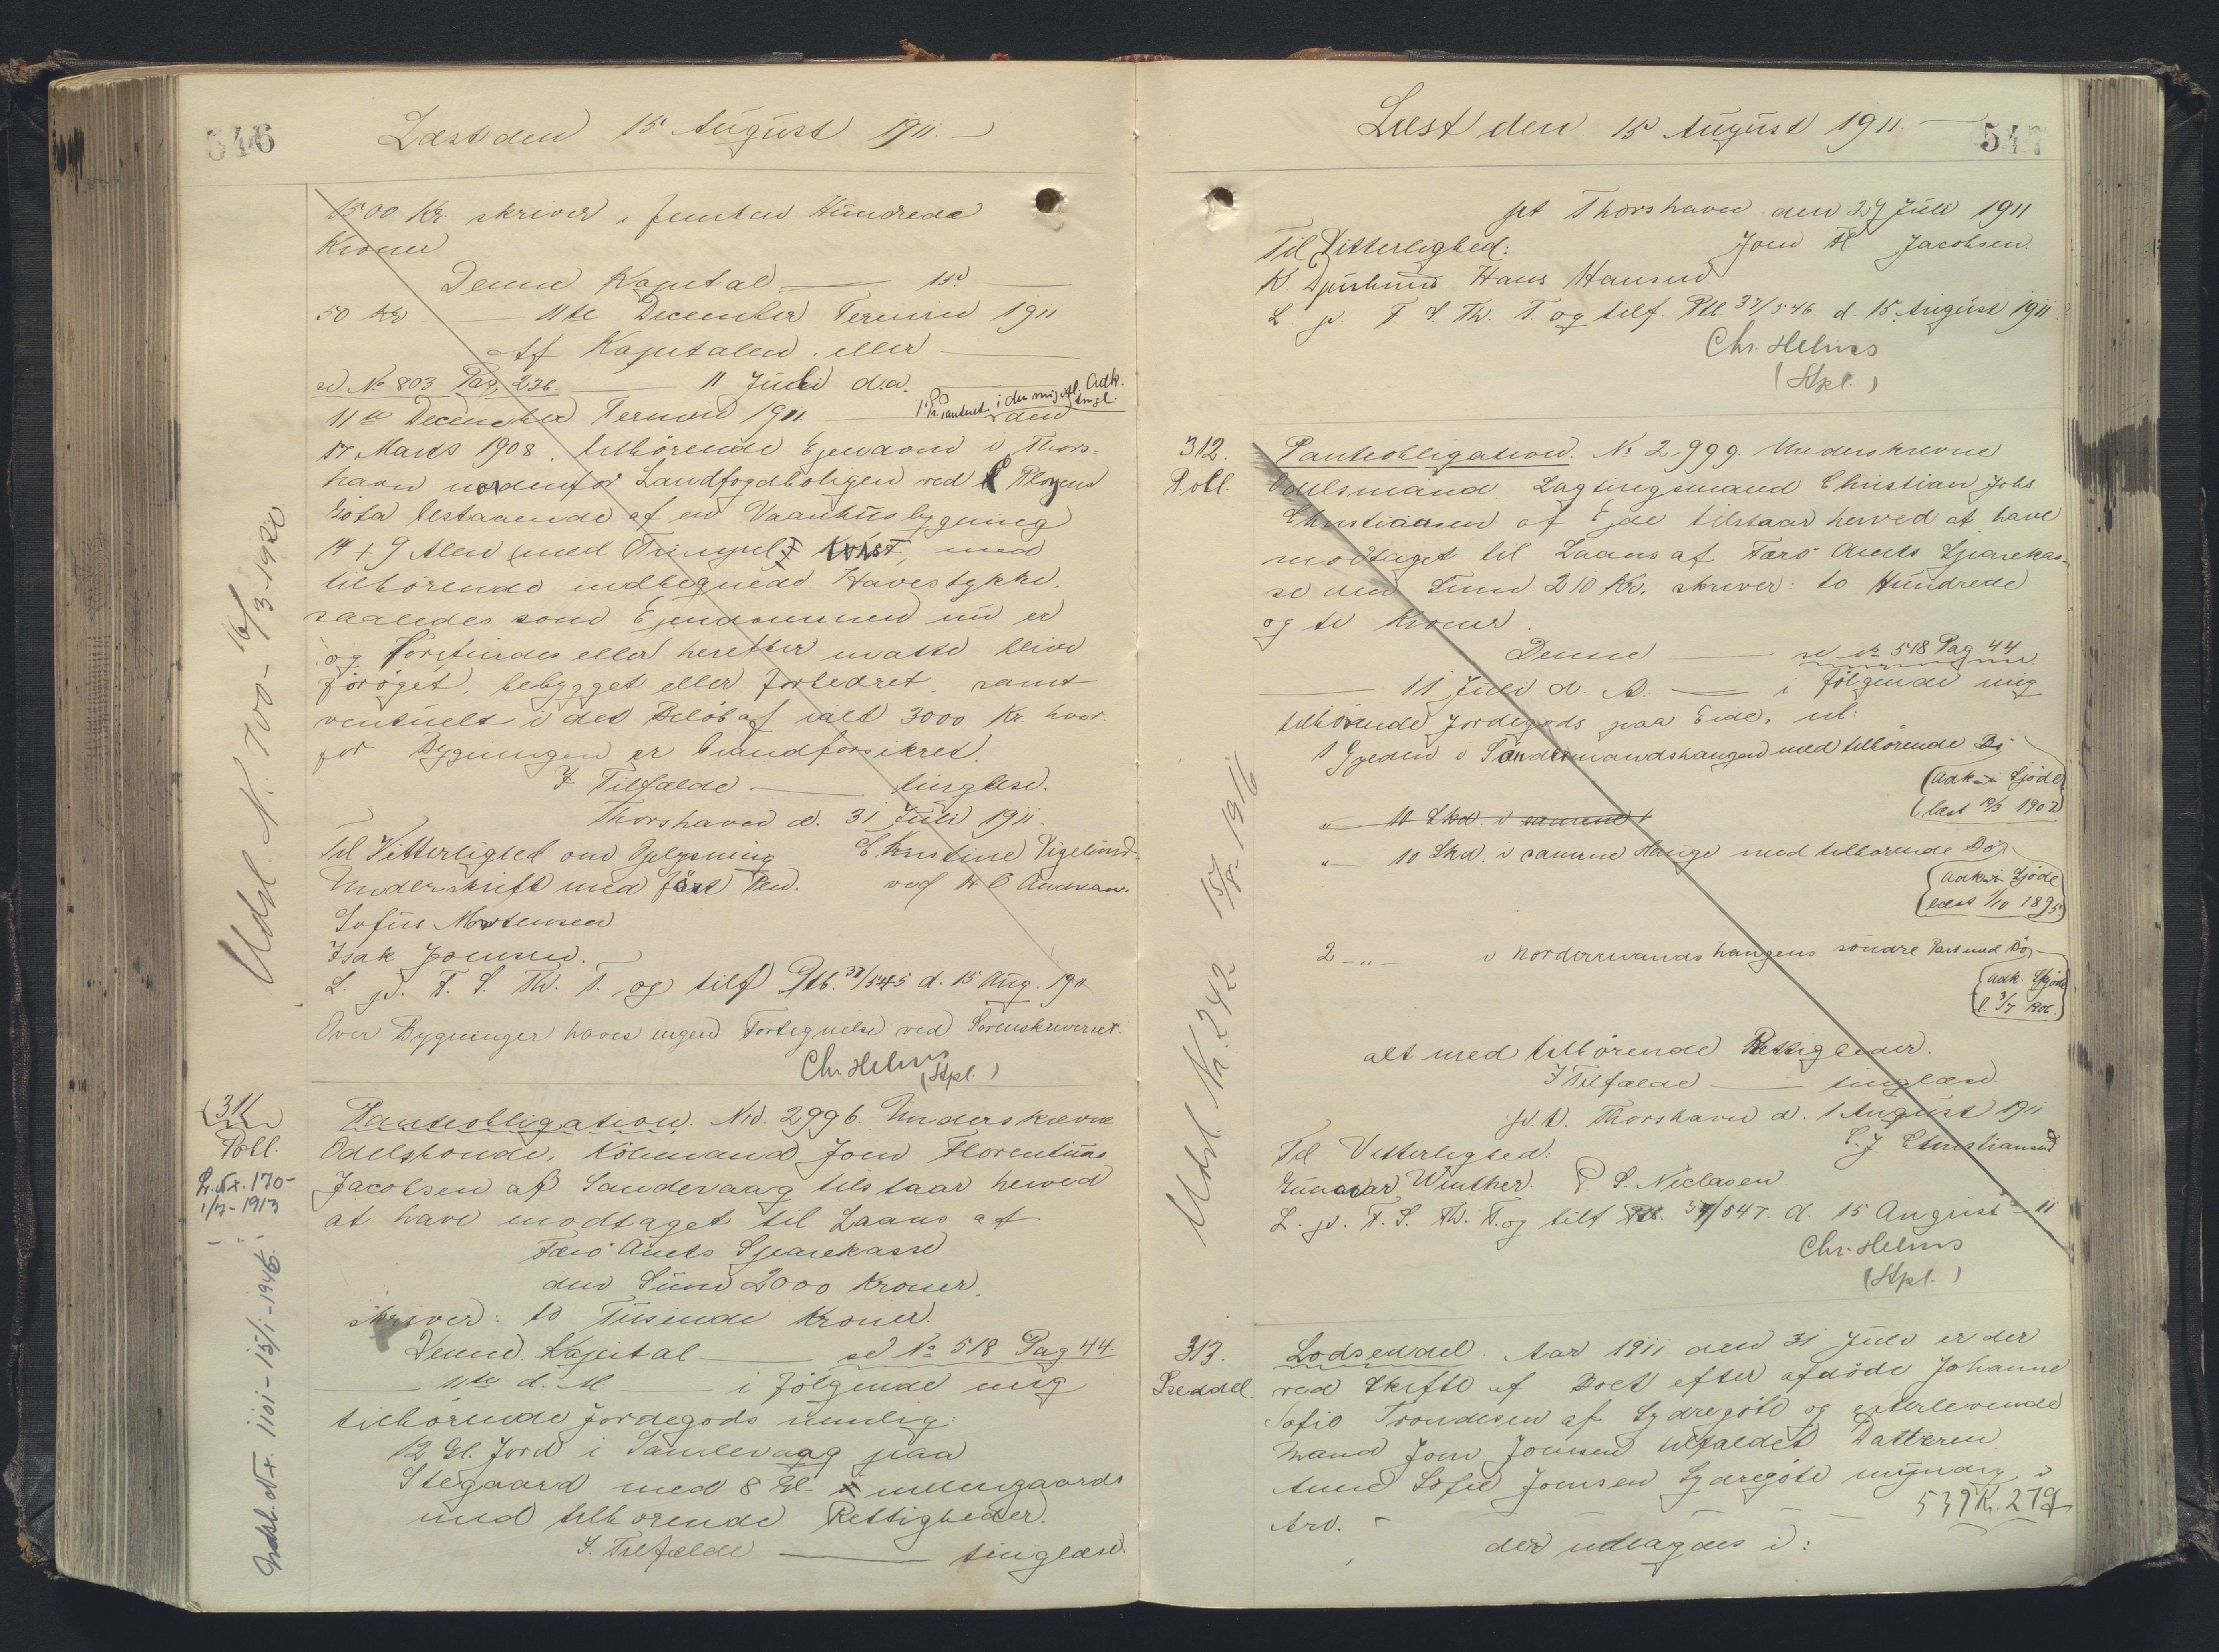 546
Læst den 15 August 1911.
1500 Kr skriver, femten Hundrede
Kroner
Denne Kapital — 15d —
50 Kr — 11te December Termin 1911
Af Kapitalen, eller —
se No 803 Pag. 236. — 11 Juli d.a. —
11te December Termin 1911 — 1' Panteret i den mig ifl. Adk. tingl. den
17 Marts 1908, tilhørende Ejendom i Thors=
havn nordenfor Landfogdboligen ved Pløyens
Gøta bestaaende af en Vaanhusbygning
14 + 9 Alen (med Trimpel & Kvist, med
tilhørende indhegnede Havestykke,
saaledes som Ejendommen nu er
og forefindes eller herefter maatte blive
forøget, bebygget eller forbedret, samt
ventuelt i det Beløb af ialt 3000 Kr. hvor-
for Bygningen er brandforsikret.
I Tilfælde — tinglæse.
Thorshavn d. 31 Juli 1911.
Til Vitterlighed om Oplysning Christine Vigelund
Underskrift med ført Pen. ved H C Andreasen
Sofus Mortensen
Isak Joensen.
L. p. F. S. Th. T. og tilf Ptb. 37/545 d. 15 Aug. 1911
Over Bygninger haves ingen Fortegnelse ved Sorenskriveriet.
Chr. Helms
(Stpl.)
Udsl. N. 700 - 16/3 1920
311
Pobl.
Pantobligation. No. 2996. Underskrevne
Odelsbonde, Købmand Joen Florentiüs
Jacobsen af Sandevaag tilstaar herved
at have modtaget til Laans af
Færø Amts Sparekasse
den Sum 2000 Kroner,
skriver: to Tusinde Kroner.
Denne Kapital — se No 518 Pag 44.
— 11te d. M. — i følgende mig
tilhørende Jordegods nemlig:
12 Gl. Jord i Sandevaag paa
Stegaard med 8 Gl. indengaards
med tilhørende Rettigheder.
I. Tilfælde — tinglæse.
L. Nr. 170-
1/7-1913
Udsl. Nr. 1101 - 15/1-1946.
547
Læst den 15 August 1911. —
pt Thorshavn den 27 Juli 1911
Til Vitterlighed: Joen Fl Jacobsen.
K Djurhuus Hans Hansen.
L. p. F. S. Th. T. og tilf. Ptb 37/546 d. 15 August 1911.
Chr. Helms
(Stpl.)
312.
P.obl.
Panteobligation. No 2999. Underskrevne
Odelsmand, Lagtingsmand Christian Johs
Christiansen af Ejde tilstaar herved at have
modtaget til Laans af Færø Amts Sparekas-
se den Sum 210 Kr. skriver: to Hundrede
og ti Kroner.
Denne — se No 518 Pag 44
— 11 Juli d. A. — i følgende mig
tilhørende Jordegods paa Eide, nl:
1 Gylden i Søndermandshaugen med tilhørende Bø
(Adk. Skjøde
læst 19/3 1902)
" 10 Skd. i samme
" 10 Skd. i samme Hauge med tilhørende Bø
(Adk. Skjøde
læst 1/10 1895)
2 - " - i Nordermandshaugens søndre Part med Bø
(Adk. Skjøde
l. 3/7 1906.)
alt med tilhørende Rettigheder.
I Tilfælde — tinglæse.
p.t. Thorshavn d. 1 August 1911
Til Vitterlighed: C. J. Christiansen
Gunnar Winther. P. S. Niclasen
L. p. F. S. Th. T. og tilf Ptb. 37/547. d. 15 August 11
Chr. Helms
(Stpl.)
Udsl. Nr. 242 15/8 1916
313.
Lseddel.
Lodseddel. Aar 1911 den 31 Juli er der
ved Skifte af Boet efter afdøde Johanne
Sofie Trondesen af Sydregøte og efterlevende
Mand Joen Joensen tilfaldet Datteren
Anne Sofie Joensen Sydregøte umyndig, i
Arv. 539 Kr. 27
der udlagdes i: